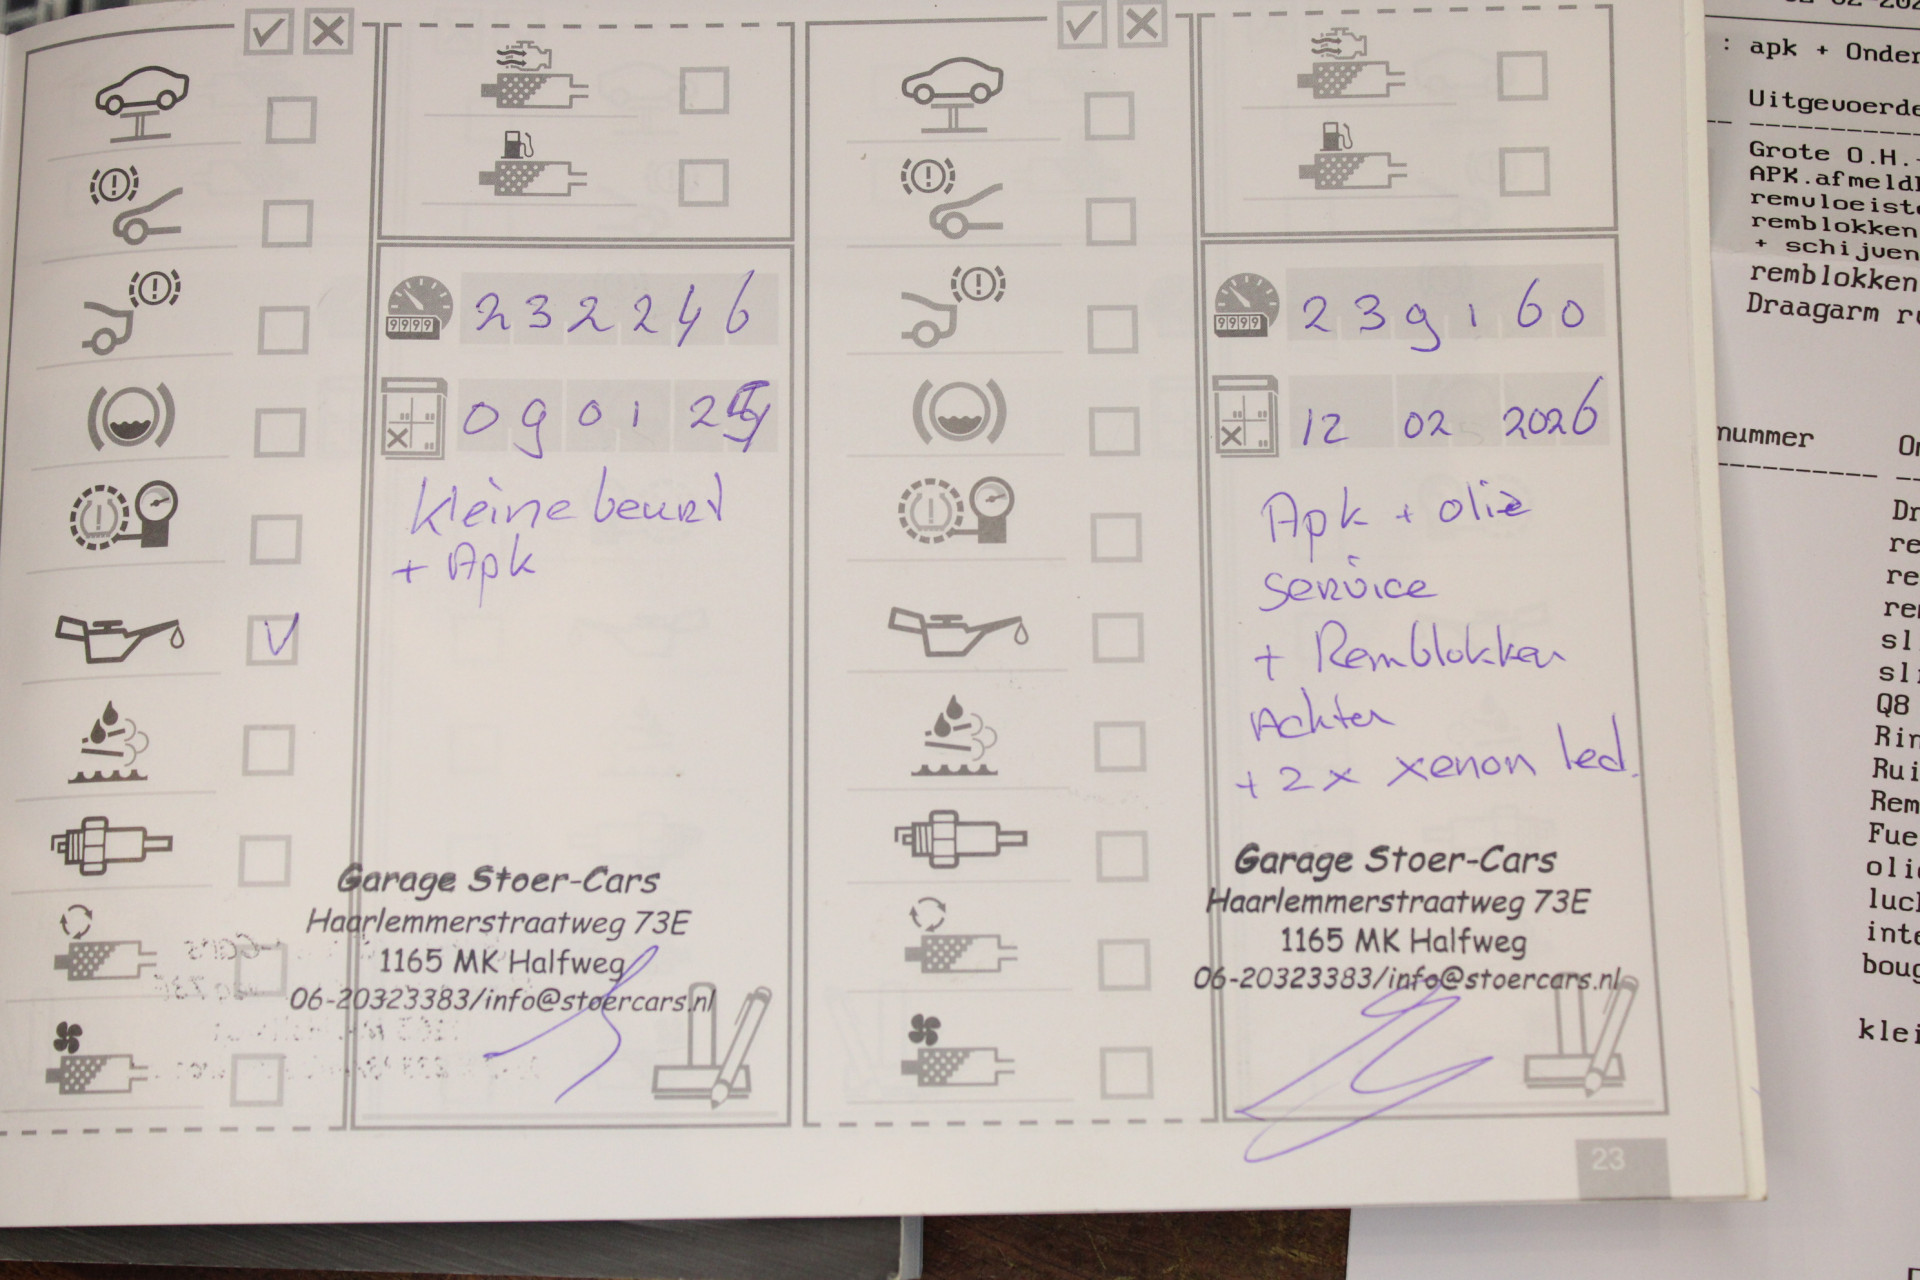 9999
232246
09 01 25
Kleine beurt
+ Apk
Garage Stoer-Cars
Haarlemmerstraatweg 73E
1165 MK Halfweg
06-20323383/info@stoercars.nl
9999
239160
12 02 2026
Apk + olie
service
+ Remblokken
Achter
+ 2x xenon led.
Garage Stoer-Cars
Haarlemmerstraatweg 73E
1165 MK Halfweg
06-20323383/info@stoercars.nl
23
: apk + Onder
Uitgevoerde
Grote O.H.
APK.afmeld
remvloeist
remblokken
+ schijven
remblokken
Draagarm
nummer
Dr
re
re
rem
sl
sl
Q8
Rin
Rui
Rem
Fue
olie
luch
inte
boug
klei